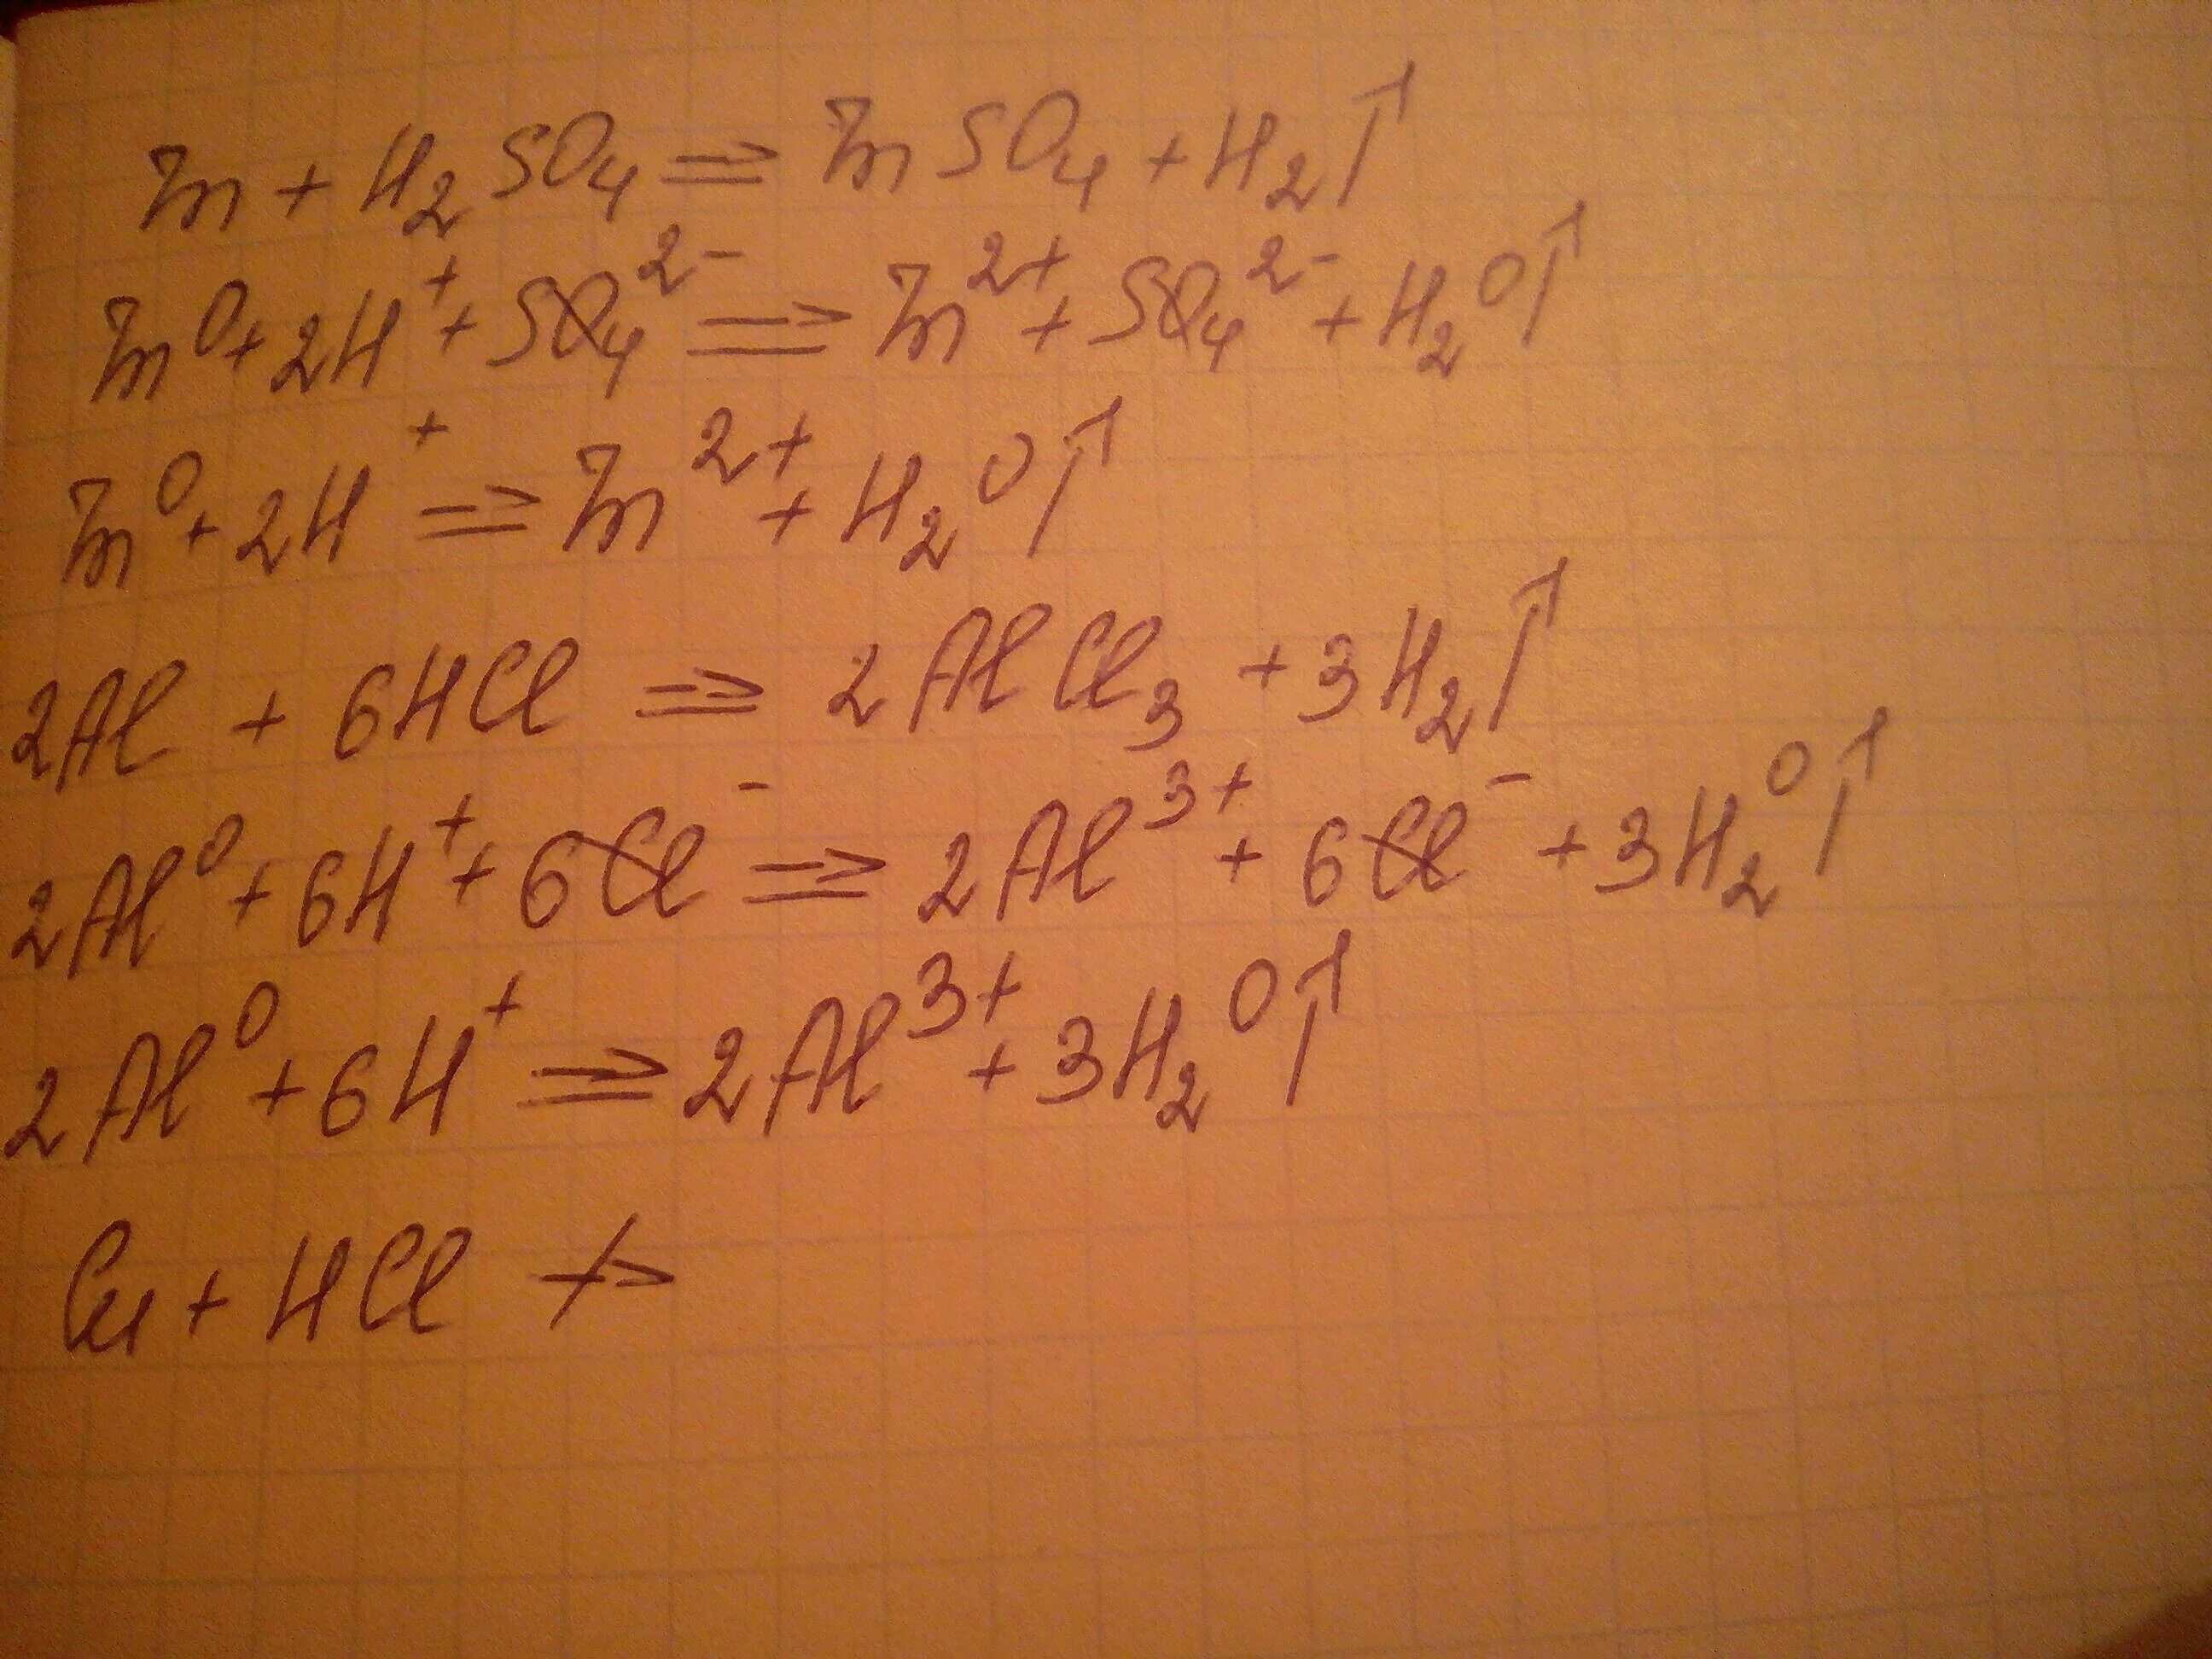 Zn + H₂SO₄ ⇒ ZnSO₄ + H₂↑
Zn⁰ + 2H⁺ + SO₄²⁻ ⇒ Zn²⁺ + SO₄²⁻ + H₂⁰↑
Zn⁰ + 2H⁺ ⇒ Zn²⁺ + H₂⁰↑
2Al + 6HCl ⇒ 2AlCl₃ + 3H₂↑
2Al⁰ + 6H⁺ + 6Cl⁻ ⇒ 2Al³⁺ + 6Cl⁻ + 3H₂⁰↑
2Al⁰ + 6H⁺ ⇒ 2Al³⁺ + 3H₂⁰↑
Cu + HCl ↛